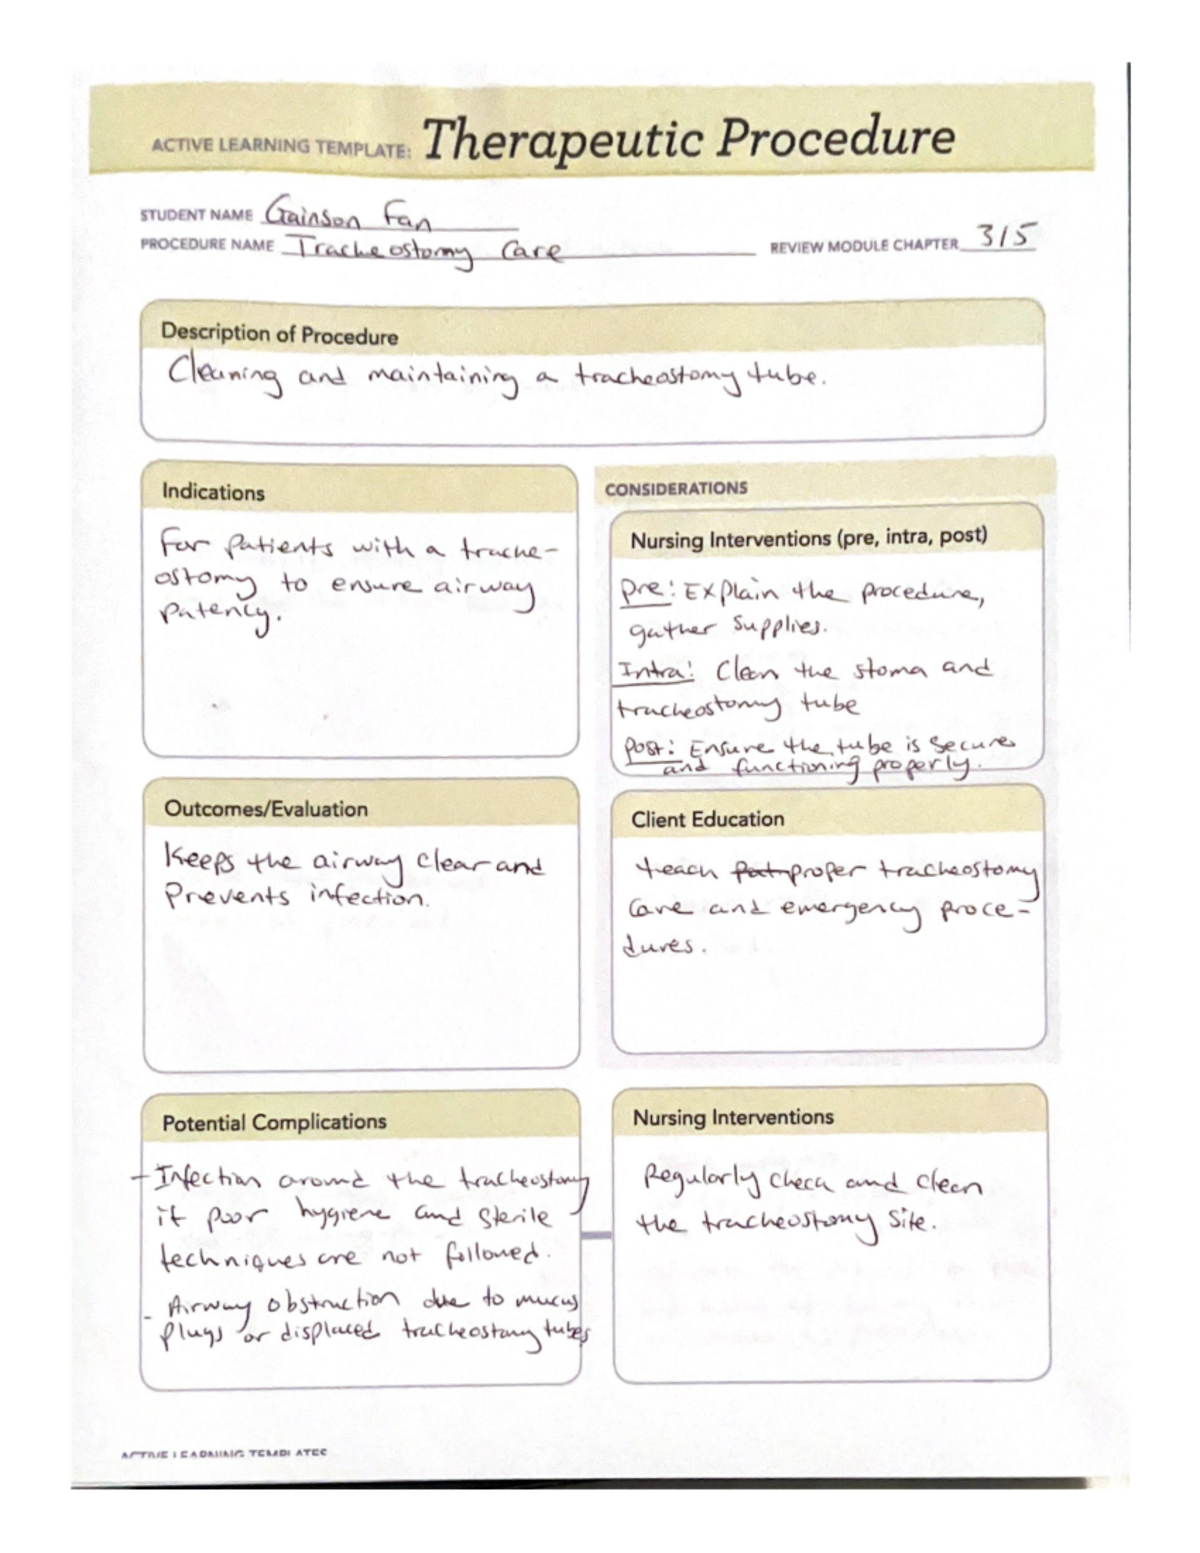 ACTIVE LEARNING TEMPLATE: Therapeutic Procedure
STUDENT NAME Gainson Fan
PROCEDURE NAME Tracheostomy Care
REVIEW MODULE CHAPTER 315
Description of Procedure
Cleaning and maintaining a tracheostomy tube.
Indications
For patients with a trache-
ostomy to ensure airway
patency.
CONSIDERATIONS
Nursing Interventions (pre, intra, post)
Pre: Explain the procedure,
gather supplies.
Intra: Clean the stoma and
tracheostomy tube
Post: Ensure the tube is secure
and functioning properly.
Outcomes/Evaluation
Keeps the airway clear and
Prevents infection.
Client Education
teach proper tracheostomy
care and emergency proce-
dures.
Potential Complications
- Infection around the tracheostomy
if poor hygiene and sterile
techniques are not followed.
- Airway obstruction due to mucus
plugs or displaced tracheostomy tubes
Nursing Interventions
Regularly check and clean
the tracheostomy site.
ACTIVE LEARNING TEMPLATES